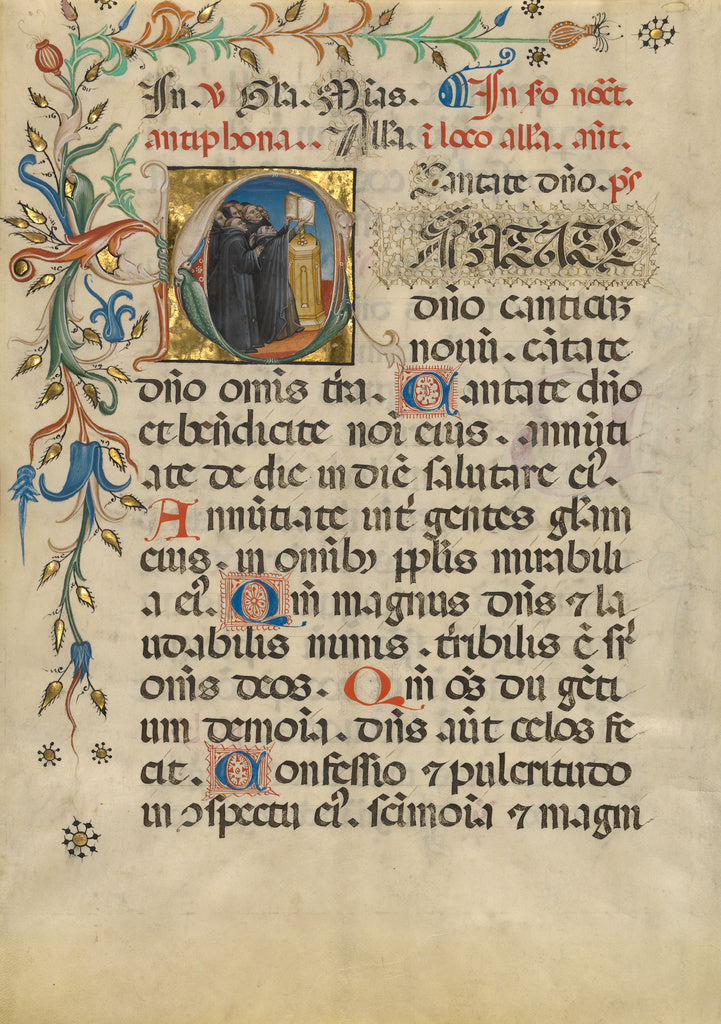 In. v Gła. Pr̃ias. In fo noct̃.
antiphona.. Alła. ĩ loco alła. añt.
Cantate dño. p̃s
CANTATE
dño canticũ
nouũ. cãtate
dño om̃is t̃ra. Cantate dño
et beñdicite noĩ eius. annũti
ate de die in diẽ salutare eiꝰ.
Annũtiate int̃ gentes gl̃am
eius. in om̃ibꝫ pp̃lis mirabili
a eiꝰ. Qm̃ magnus dñs ⁊ la
udabilis nimis. t̃ribilis ẽ sr̃
om̃is deos. Qm̃ om̃s dii gẽti
um demoĩa. dñs aũt celos fe
cit. Confessio ⁊ pulcritudo
in ↄspectu eiꝰ. sc̃imoĩa ⁊ magni